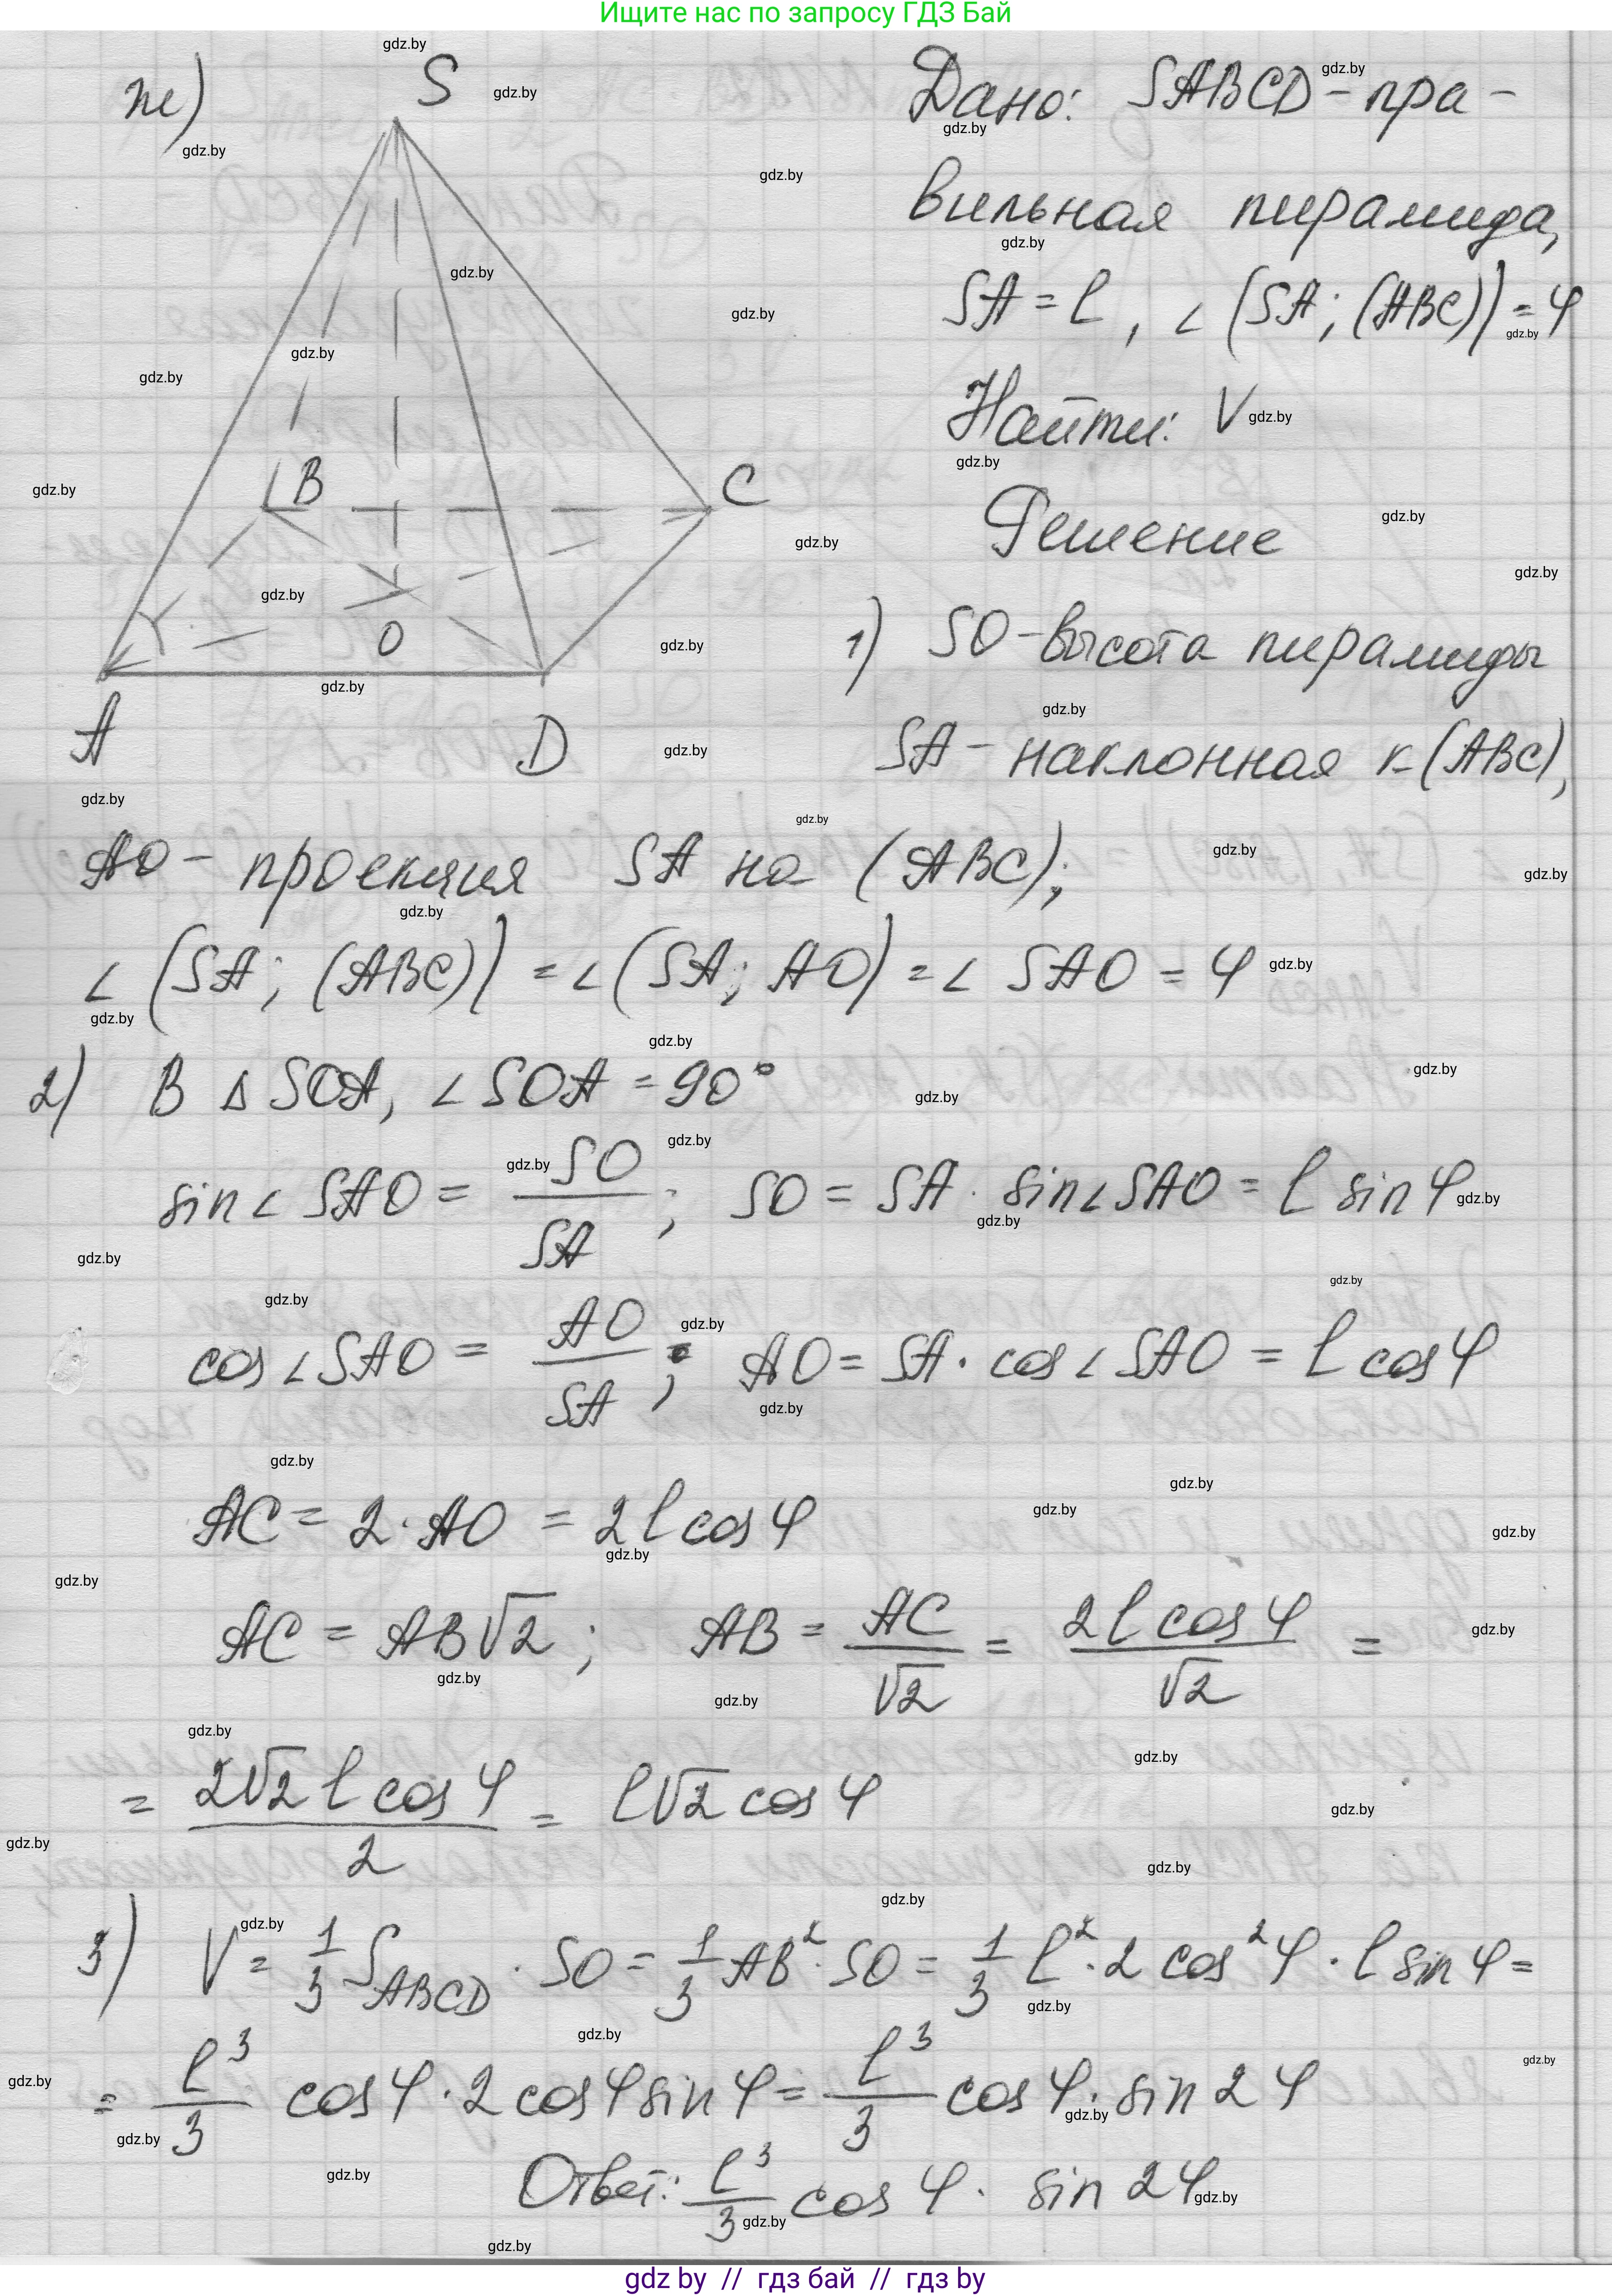 Ищите нас по запросу ГДЗ Бай
ж)
S
B
C
O
A
D
Дано: SABCD - пра-
вильная пирамида,
SA = l, ∠(SA; (ABC)) = φ
Найти: V
Решение
1) SO - высота пирамиды
SA - наклонная к (ABC),
AO - проекция SA на (ABC);
∠(SA; (ABC)) = ∠(SA; AO) = ∠ SAO = φ
2) В Δ SOA, ∠ SOA = 90°
sin∠ SAO = SO/SA; SO = SA · sin∠SAO = l sin φ
cos∠SAO = AO/SA; AO = SA · cos∠SAO = l cos φ
AC = 2 · AO = 2l cos φ
AC = AB√2; AB = AC/√2 = 2l cos φ/√2 =
= 2√2 l cos φ/2 = l√2 cos φ
3) V = 1/3 S_ABCD · SO = 1/3 AB² · SO = 1/3 l² · 2 cos² φ · l sin φ =
= l³/3 cos φ · 2 cos φ sin φ = l³/3 cos φ · sin 2φ
Ответ: l³/3 cos φ · sin 2φ
gdz by // гдз бай // гдз by